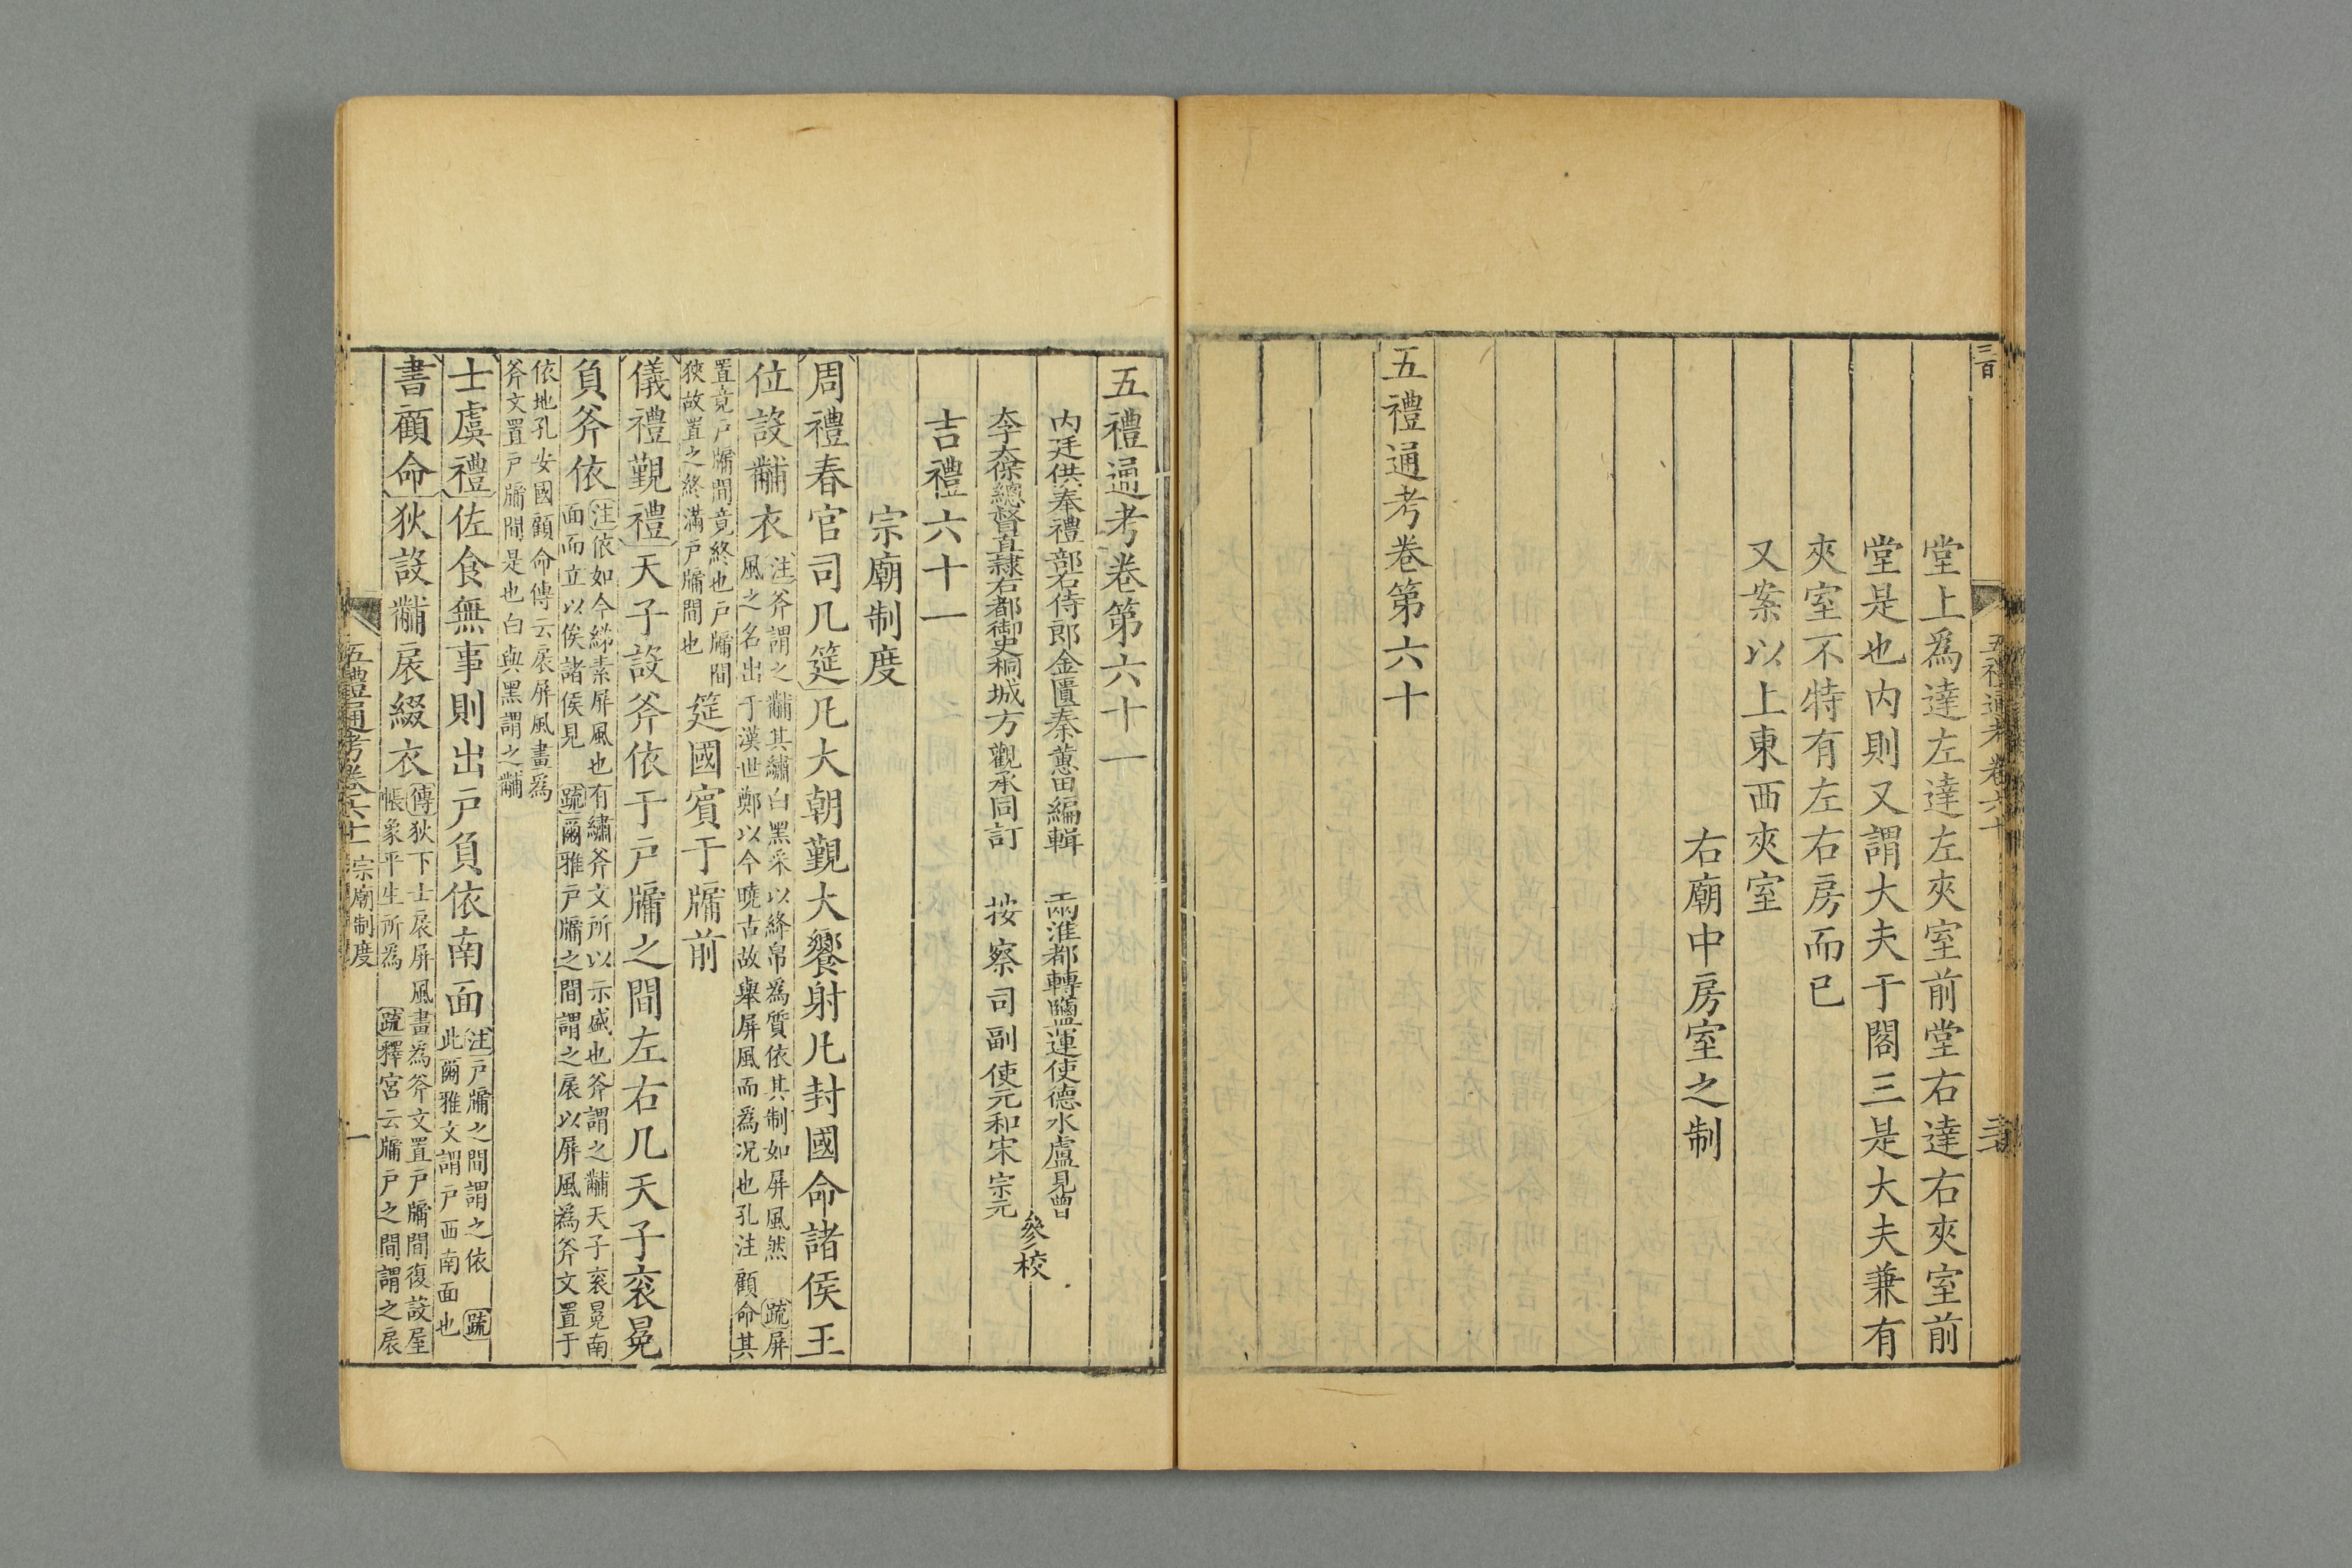 堂上爲達左達左夾室前堂右達右夾室前
堂是也内則又謂大夫于閣三是大夫兼有
夾室不特有左右房而已
又案以上東西夾室
右廟中房室之制
五禮通考卷第六十
五禮通考卷第六十一
内廷供奉禮部右侍郎金匱秦蕙田編輯 兩淮都轉鹽運使德水盧見曾
太子太保總督直隷右都御史桐城方觀承同訂 按察司副使元和宋宗元
參校
吉禮六十一
宗廟制度
周禮春官司几筵凡大朝覲大饗射凡封國命諸侯王
位設黼衣
注斧謂之黼其繡白黑采以絳帛爲質依其制如屏風然 疏屏
風之名出于漢世鄭以今曉古故舉屏風而爲况也孔注顧命其
置竟戸牖間竟終也戸牖間
狹故置之終滿戸牖間也
筵國賓于牖前
儀禮覲禮天子設斧依于戸牖之間左右几天子衮冕
負斧依
注依如今綈素屏風也有繡斧文所以示威也斧謂之黼天子衮冕南
面而立以俟諸侯見 疏爾雅戸牖之間謂之扆以屏風爲斧文置于
依地孔安國顧命傳云扆屏風畫爲
斧文置戸牖間是也白與黑謂之黼
士虞禮佐食無事則出戸負依南面
注戸牖之間謂之依 疏
此爾雅文謂戸西南面也
書顧命狄設黼扆綴衣
傳狄下士扆屏風畫爲斧文置戸牖間復設幄
帳象平生所爲 疏釋宮云牖戸之間謂之扆
五禮通考卷六十一 宗廟制度 一